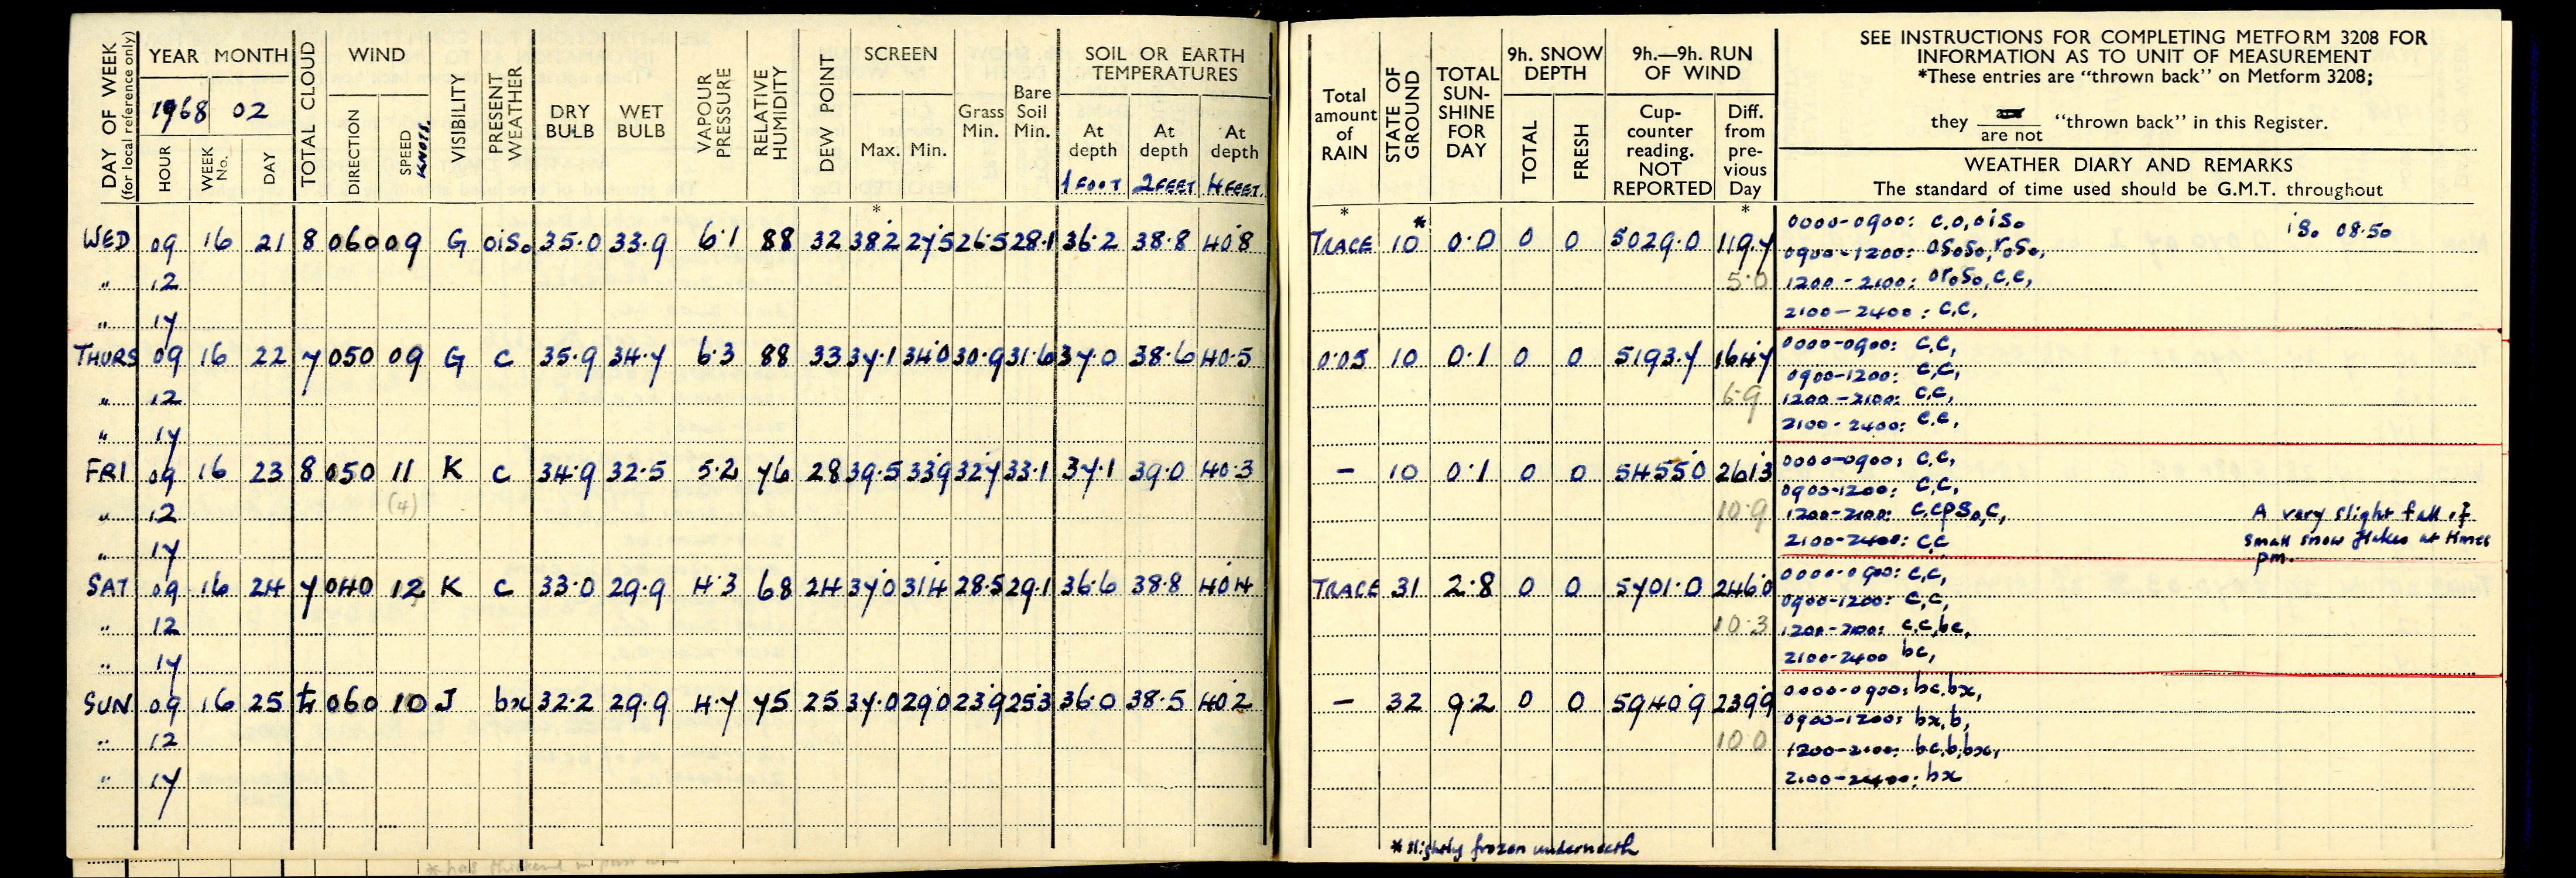 DAY OF WEEK (for local reference only)
YEAR MONTH
1968 02
HOUR
WEEK No.
DAY
TOTAL CLOUD
WIND
DIRECTION
SPEED KNOTS.
VISIBILITY
PRESENT WEATHER
DRY BULB
WET BULB
VAPOUR PRESSURE
RELATIVE HUMIDITY
DEW POINT
SCREEN
Max. Min.
*
Grass Min.
Bare Soil Min.
SOIL OR EARTH TEMPERATURES
At depth 1 FOOT
At depth 2 FEET
At depth 4 FEET.
Total amount of RAIN
*
STATE OF GROUND
TOTAL SUN-SHINE FOR DAY
9h. SNOW DEPTH
TOTAL
FRESH
9h.—9h. RUN OF WIND
Cup-counter reading. NOT REPORTED
Diff. from pre-vious Day
*
SEE INSTRUCTIONS FOR COMPLETING METFORM 3208 FOR
INFORMATION AS TO UNIT OF MEASUREMENT
*These entries are "thrown back" on Metform 3208;
they are not "thrown back" in this Register.
WEATHER DIARY AND REMARKS
The standard of time used should be G.M.T. throughout
WED 09 16 21 8 060 09 G oiso 35.0 33.9 6.1 88 32 38.2 27.5 26.5 28.1 36.2 38.8 40.8 TRACE 10* 0.0 0 0 5029.0 119.7
0000-0900: c,o,oiso iso 08.50
0900-1200: osoSo,roSo,
" 12 5.0
1200-2100: oroSo,c,c,
" 17
2100-2400: c,c,
THURS 09 16 22 7 050 09 G c 35.9 34.7 6.3 88 33 37.1 34.0 30.9 31.6 37.0 38.6 40.5 0.05 10 0.1 0 0 5193.7 164.7
0000-0900: c,c,
0900-1200: c,c,
" 12 6.9
1200-2100: c,c,
" 17
2100-2400: c,c,
FRI 09 16 23 8 050 11 K c 34.9 32.5 5.2 76 28 39.5 33.9 32.7 33.1 37.1 39.0 40.3 - 10 0.1 0 0 5455.0 261.3
0000-0900: c,c,
0900-1200: c,c,
" 12 (4) 10.9
1200-2100: c,cpso,c, A very slight fall of
" 17
2100-2400: c,c small snow flakes at times
pm.
SAT 09 16 24 7 040 12 K c 33.0 29.9 4.3 68 24 37.0 31.4 28.5 29.1 36.6 38.8 40.4 TRACE 31 2.8 0 0 5701.0 246.0
0000-0900: c,c,
0900-1200: c,c,
" 12 10.3
1200-2100: c,c,bc,
" 17
2100-2400 bc,
SUN 09 16 25 060 10 J bx 32.2 29.9 4.7 75 25 37.0 29.0 23.9 25.3 36.0 38.5 40.2 - 32 9.2 0 0 5940.9 239.9
0000-0900: bc,bx,
0900-1200: bx,b,
" 12 10.0
1200-2100: bc,b,bx,
" 17
2100-2400: bx
* slightly frozen underneath